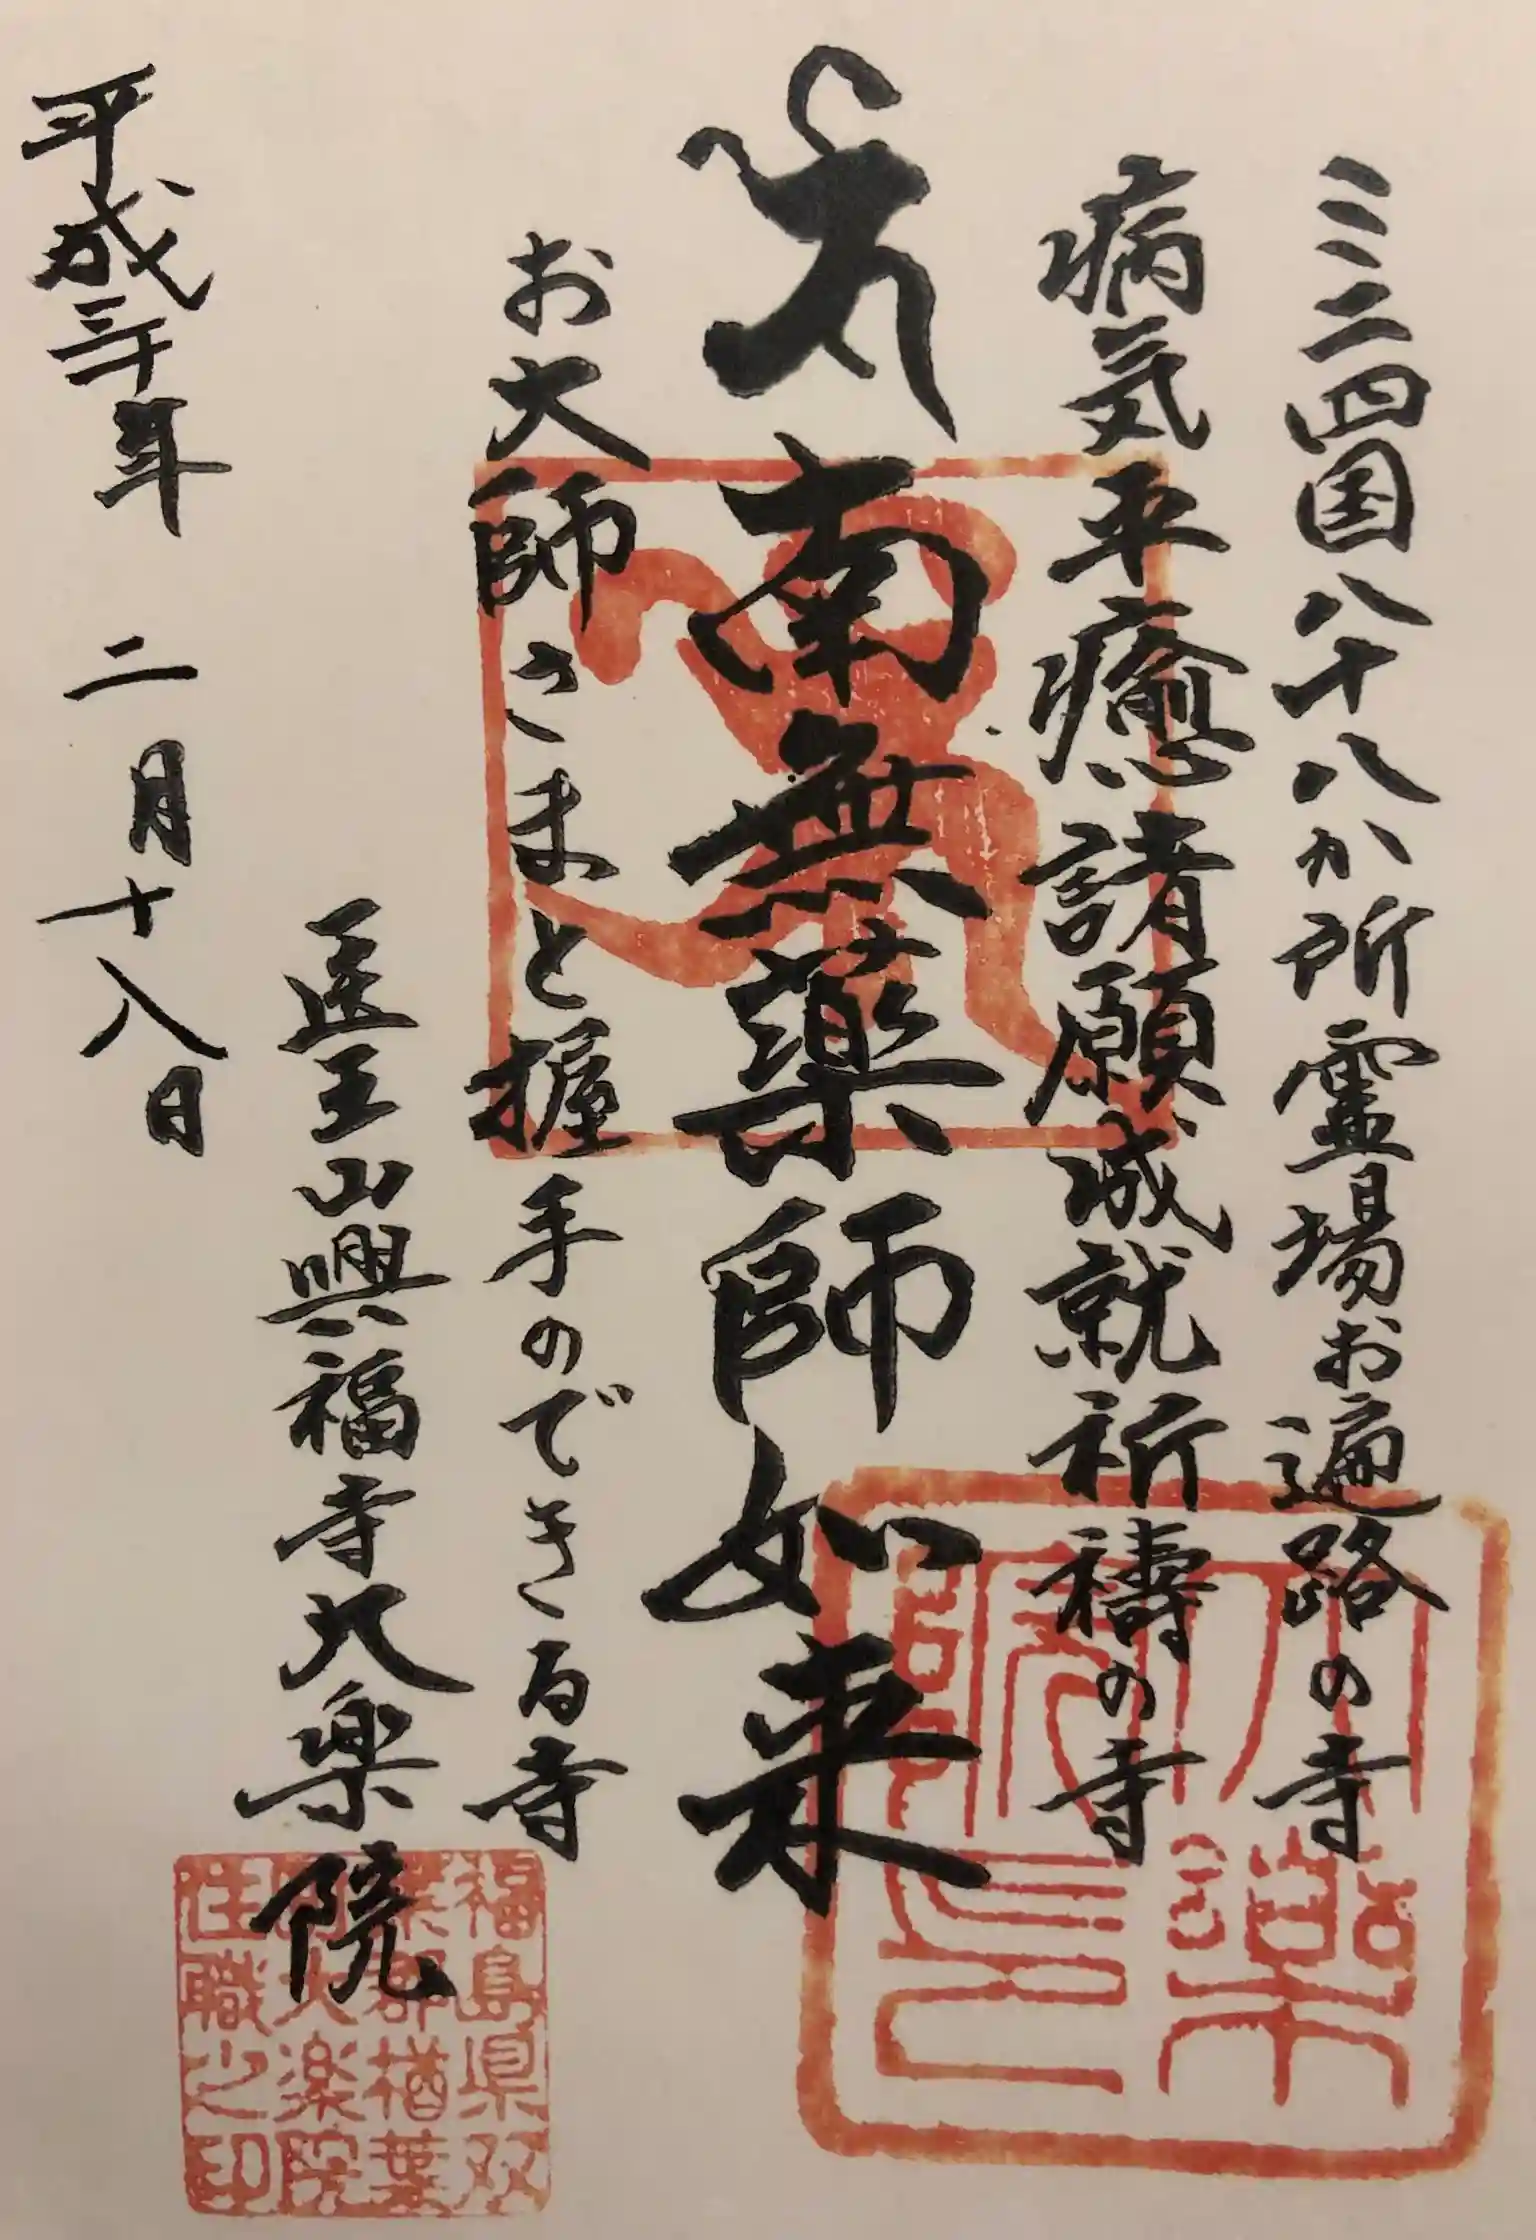 ミニ四国八十八か所霊場お遍路の寺
病気平癒諸願成就祈禱の寺
南無薬師如来
お大師さまと握手のできる寺
医王山興福寺大楽院
平成三十年 二月十八日
大楽院印
福島県双
葉郡楢葉
町大楽院
住職之印